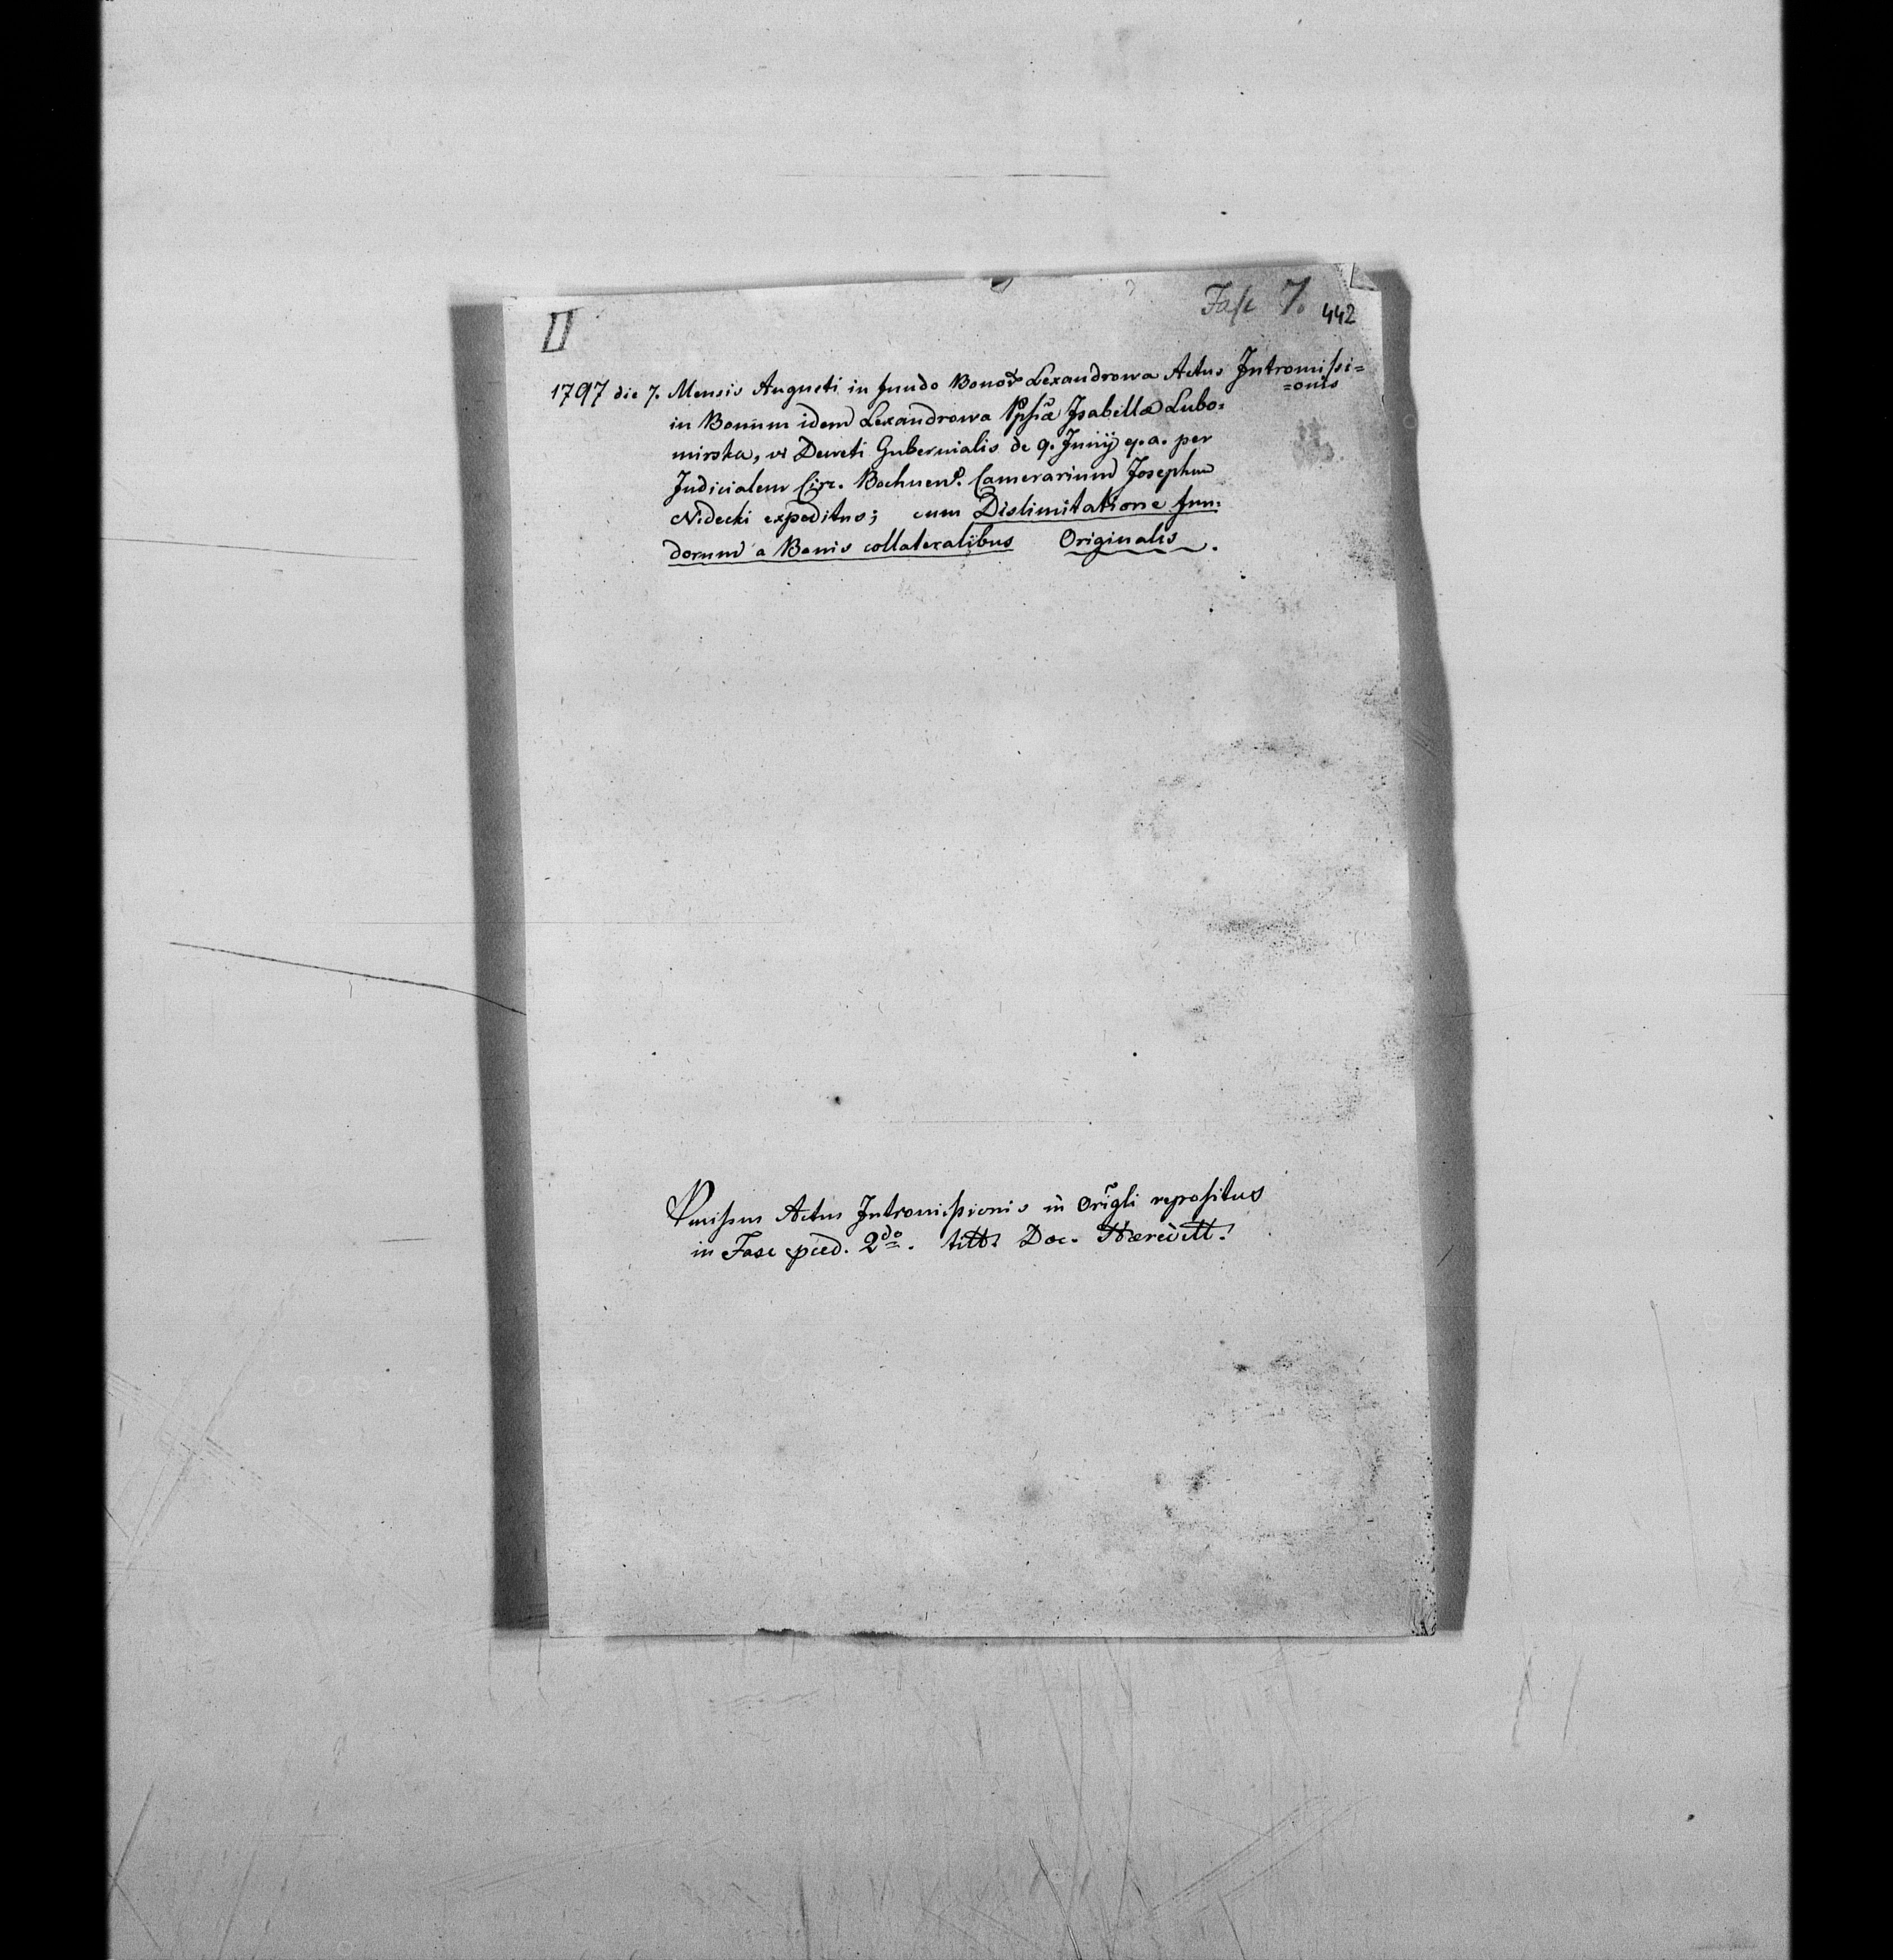 II
Fasc 7. 442
1797 die 7. Mensis Augusti in fundo Bonor Lexandrowa Actus Intromissi=
=onis
in Bonum idem Lexandrowa Ppssæ Isabellæ Lubo=
mirska, vi Decreti Gubernialis de 9. Junij q. a. per
Judicialem Circ. Bochnens. Camerarium Josephum
Nidecki expeditus; cum Dislimitatione fun=
dorum a Bonis collateralibus Originalis.
Actus Intromissionis in Origli repositus
in Fasc 2do. titt. Doc. Hæreditt.